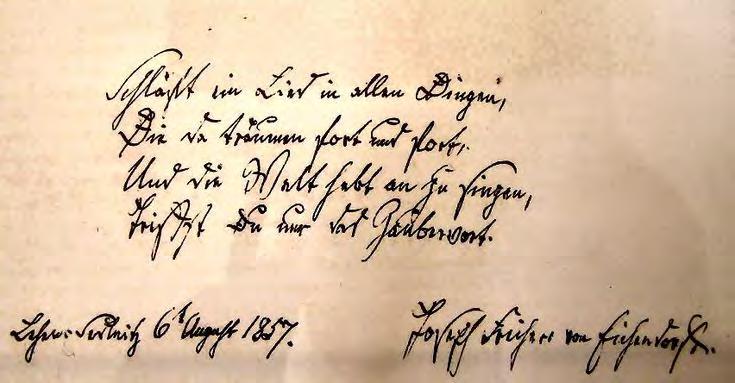 Schläft ein Lied in allen Dingen,
Die da träumen fort und fort,
Und die Welt hebt an zu singen,
Triffst Du nur das Zauberwort.
Sedlnitz 6t August 1857.
Joseph Freiherr von Eichendorff.